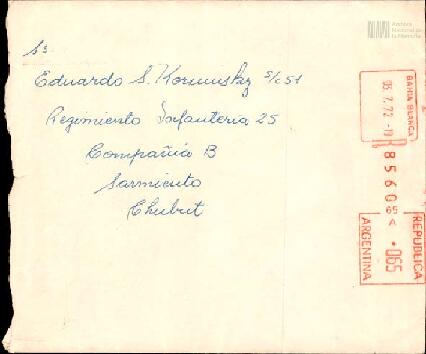 Sr.
Eduardo S. Kormusky S/C 51
Regimiento Infanteria 25
Compañia B
Sarmiento
Chubut
Archivo
Nacional de
la Memoria
BAHIA BLANCA
85600
65 A
REPUBLICA
ARGENTINA
•065